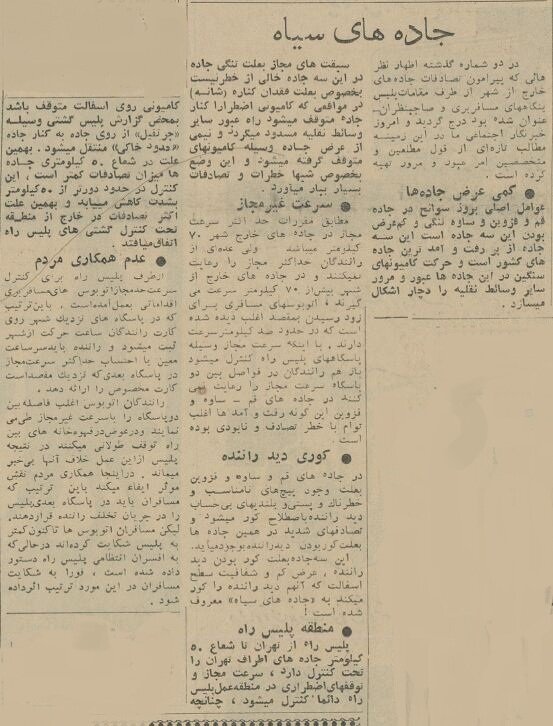 جاده های سیاه
در دو شماره گذشته اظهار نظر
هائی که پیرامون تصادفات جاده‌های
خارج از شهر از طرف مقامات پلیس
بنگاههای مسافربری و صاحبنظران
عنوان شده بود درج گردید و امروز
خبرنگار اجتماعی ما در این زمینه
مطالب تازه‌ای از قول مطلعین و
متخصصین امر عبور و مرور تهیه
کرده است .
● کمی عرض جاده‌ها
عوامل اصلی بروز سوانح در جاده
قم و قزوین و ساوه تنگی و کم‌عرض
بودن این سه جاده است این سه
جاده از پر رفت و آمد ترین جاده
های کشور است و حرکت کامیونهای
سنگین در این جاده ها عبور و مرور
سایر وسائط نقلیه را دچار اشکال
میسازد .
سبقت های مجاز بعلت تنگی جاده
در این سه جاده خالی از خطر نیست
بخصوص بعلت فقدان کناره (شانه)
در مواقعی که کامیونی اضطرارا کنار
جاده متوقف میشود راه عبور سایر
وسائط نقلیه مسدود میگردد و نیمی
از عرض جاده وسیله کامیونهای
متوقف گرفته میشود و این وضع
بخصوص شبها خطرات و تصادفات
بسیار ببار میآورد .
● سرعت غیر مجاز
مطابق مقررات حد اکثر سرعت
مجاز در جاده های خارج شهر ۷۰
کیلومتر میباشد ولی عده‌ای از
رانندگان حداکثر مجاز را رعایت
نمیکنند و در جاده های خارج از
شهر بیش‌از ۷۰ کیلومتر سرعت می
گیرند ، اتوبسهای مسافری برای
زود رسیدن بمقصد اغلب دیده شده
است که در حدود صد کیلومترسرعت
دارند . با اینکه سرعت مجاز وسیله
پاسگاههای پلیس راه کنترل میشود
باز هم رانندگان در فواصل بین دو
پاسگاه سرعت مجاز را رعایت نمی
کنند در جاده های قم ـ ساوه و
قزوین این گونه رفت و آمد ها اغلب
توام با خطر تصادف و نابودی بوده
است .
● کوری دید راننده
در جاده های قم و ساوه و قزوین
بعلت وجود پیچ‌های نامناسب و
خطرناك و پستی‌و بلندیهای بی‌حساب
دید راننده باصطلاح کور میشود و
تصادفهای شدید در همین جاده ها
بعلت‌کور بودن دیدراننده بوجودمیاید.
این سه‌جاده بعلت کور بودن دید
راننده ، عرض کم و شفافیت سطح
اسفالت که آنهم دید راننده را کور
میکند به «جاده های سیاه» معروف
شده است !
● منطقه پلیس راه
پلیس راه از تهران تا شعاع ۵۰
کیلومتر جاده های اطراف تهران را
تحت کنترل دارد ، سرعت مجاز و
توقفهای‌اضطراری در منطقه‌عمل‌پلیس
راه دائما کنترل میشود ، چنانچه
کامیونی روی اسفالت متوقف باشد
بمحض گزارش پلیس گشتی وسیله
«جرثقیل» از روی جاده به کنار جاده
«حدود خاکی» منتقل میشود . بهمین
علت در شعاع ۵۰ کیلومتری جاده
ها میزان تصادفات کمتر است . این
کنترل در حدود دورتر از ۵۰کیلومتر
بشدت کاهش مییابد و بهمین علت
اکثر تصادفات در خارج از منطقه
تحت کنترل گشتی های پلیس راه
اتفاق‌میافتد.
● عدم همکاری مردم
ازطرف پلیس راه برای کنترل
سرعت‌حدمجازاتوبوس های‌مسافربری
اقداماتی بعمل‌آمده‌است . باین‌ترتیب
که در پاسگاه های نزدیك شهر روی
کارت رانندگان ساعت حرکت ازشهر
ثبت میشود و راننده بایدسرساعت
معین با احتساب حداکثر سرعت‌مجاز
در پاسگاه بعدی‌که نزدیك مقصداست
کارت مخصوص را ارائه دهد .
رانندگان اتوبوس اغلب فاصله‌بین
دوپاسگاه را باسرعت غیر مجاز طی‌می
نمایند ودرعوض‌درقهوه‌خانه های بین
راه توقف طولانی میکنند در نتیجه
پلیس ازاین عمل خلاف آنها بی‌خبر
میماند . دراینجا همکاری مردم نقش
موثر ایفاء میکند باین ترتیب که
مسافران باید در پاسگاه بعدی‌پلیس
را در جریان تخلف راننده قراردهند.
لیکن مسافران اتوبوس ها تاکنون‌کمتر
به پلیس شکایت کرده‌اند درحالی‌که
به افسران انتظامی پلیس راه دستور
داده شده است ، فورا به شکایت
مسافران در این مورد ترتیب اثرداده
شود .